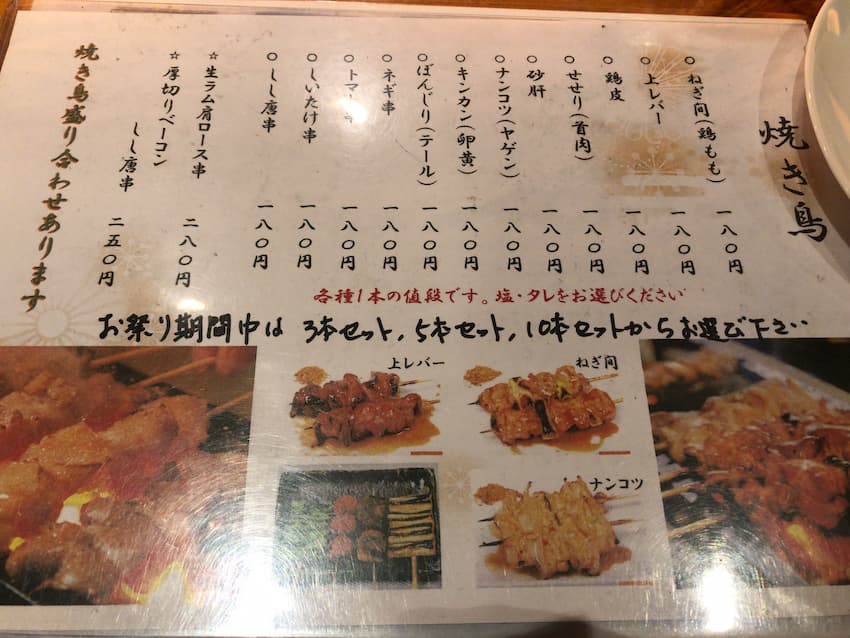 焼き鳥
○ ねぎ間(鶏もも) 一八〇円
○ 上レバー 一八〇円
○ 鶏皮 一八〇円
○ せせり(首肉) 一八〇円
○ 砂肝 一八〇円
○ ナンコツ(ヤゲン) 一八〇円
○ キンカン(卵黄) 一八〇円
○ ぼんじり(テール) 一八〇円
○ ネギ串 一八〇円
○ トマト串 一八〇円
○ しいたけ串 一八〇円
○ しし唐串 一八〇円
☆ 生ラム肩ロース串 二八〇円
☆ 厚切りベーコン
しし唐串 二五〇円
焼き鳥盛り合わせあります
各種1本の値段です。塩・タレをお選びください
お祭り期間中は 3本セット, 5本セット, 10本セットからお選び下さい
上レバー
ねぎ間
ナンコツ